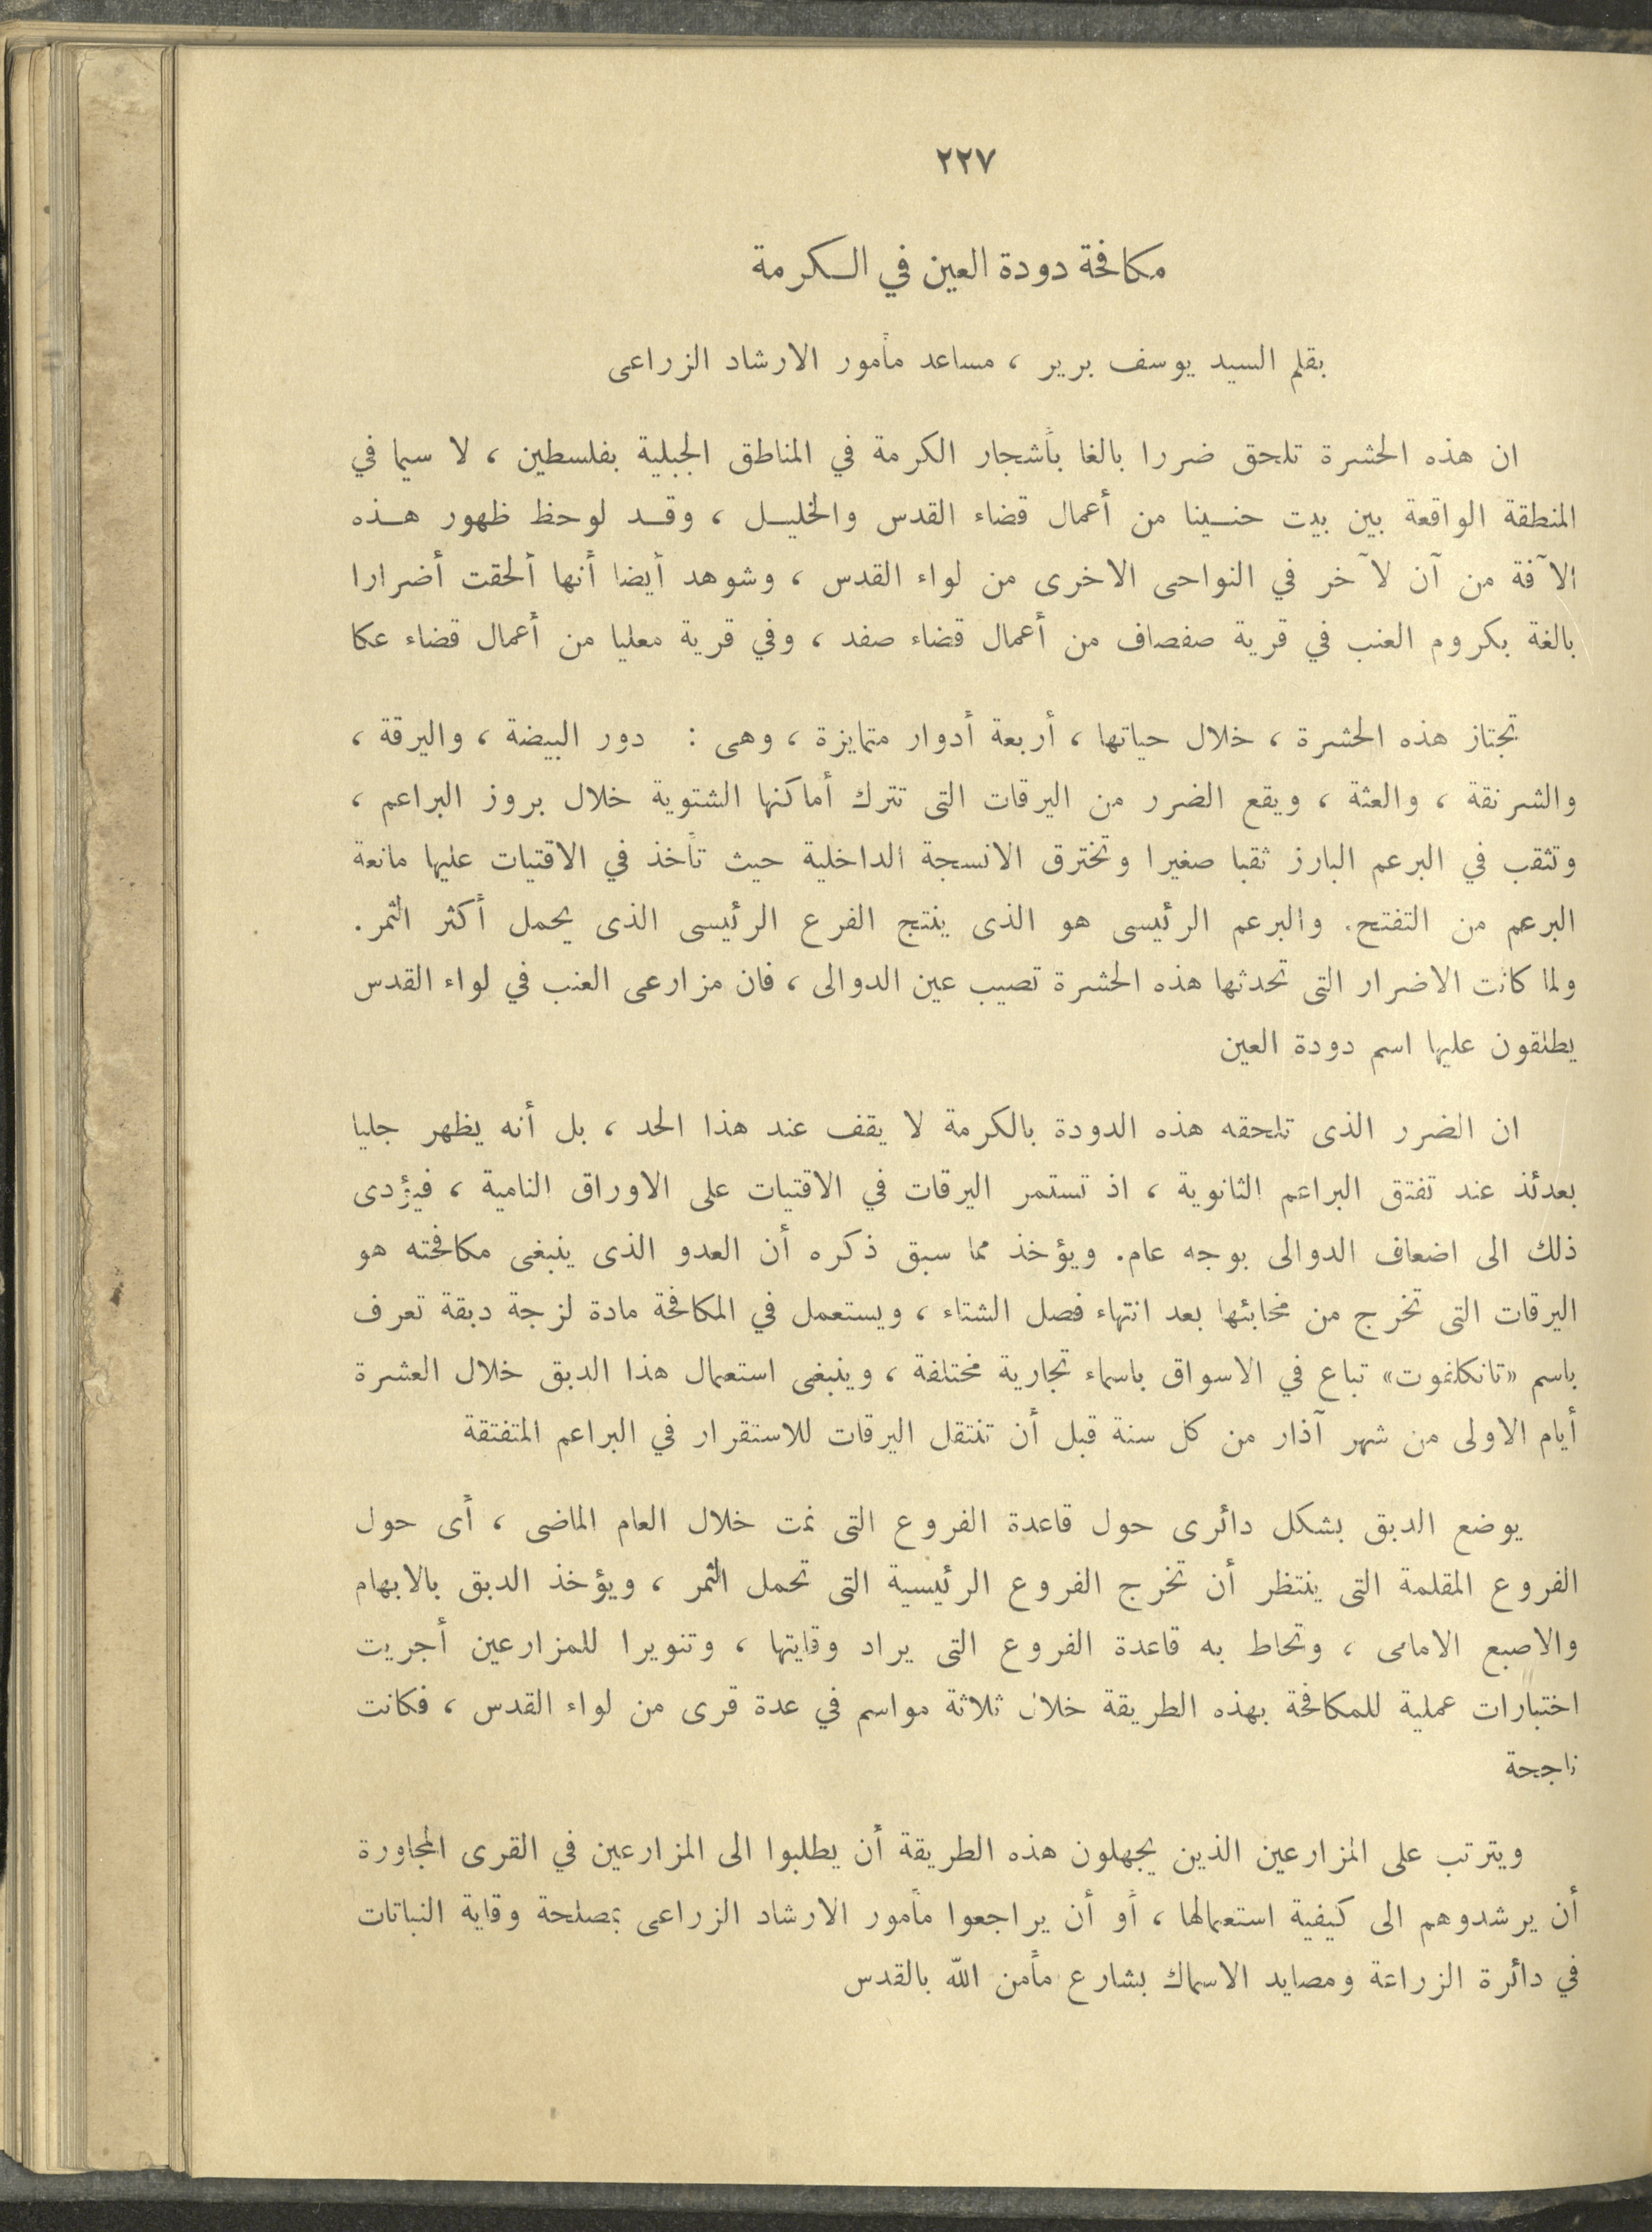 ٢٢٧
مكافحة دودة العين في الكرمة
بقلم السيد يوسف برير ، مساعد مأمور الارشاد الزراعى
ان هذه الحشرة تلحق ضررا بالغا بأشجار الكرمة في المناطق الجبلية بفلسطين ، لا سيما في
المنطقة الواقعة بين بيت حنينا من أعمال قضاء القدس والخليل ، وقد لوحظ ظهور هذه
الآفة من آن لآخر في النواحى الاخرى من لواء القدس ، وشوهد أيضا أنها ألحقت أضرارا
بالغة بكروم العنب في قرية صفصاف من أعمال قضاء صفد ، وفي قرية معليا من أعمال قضاء عكا
تجتاز هذه الحشرة ، خلال حياتها ، أربعة أدوار متمايزة ، وهى : دور البيضة ، واليرقة ،
والشرنقة ، والعثة ، ويقع الضرر من اليرقات التى تترك أماكنها الشتوية خلال بروز البراعم ،
وتثقب في البرعم البارز ثقبا صغيرا وتخترق الانسجة الداخلية حيث تأخذ في الاقتيات عليها مانعة
البرعم من التفتح. والبرعم الرئيسى هو الذى ينتج الفرع الرئيسى الذى يحمل أكثر الثمر.
ولما كانت الاضرار التى تحدثها هذه الحشرة تصيب عين الدوالى ، فان مزارعى العنب في لواء القدس
يطلقون عليها اسم دودة العين
ان الضرر الذى تلحقه هذه الدودة بالكرمة لا يقف عند هذا الحد ، بل أنه يظهر جليا
بعدئذ عند تفتق البراعم الثانوية ، اذ تستمر اليرقات في الاقتيات على الاوراق النامية ، فيؤدى
ذلك الى اضعاف الدوالى بوجه عام. ويؤخذ مما سبق ذكره أن العدو الذى ينبغى مكافحته هو
اليرقات التى تخرج من مخابئها بعد انتهاء فصل الشتاء ، ويستعمل في المكافحة مادة لزجة دبقة تعرف
باسم «تانكلفوت» تباع في الاسواق باسماء تجارية مختلفة ، وينبغى استعمال هذا الدبق خلال العشرة
أيام الاولى من شهر آذار من كل سنة قبل أن تنتقل اليرقات للاستقرار في البراعم المتفتقة
يوضع الدبق بشكل دائرى حول قاعدة الفروع التى نمت خلال العام الماضى ، أى حول
الفروع المقلمة التى ينتظر أن تخرج الفروع الرئيسية التى تحمل الثمر ، ويؤخذ الدبق بالابهام
والاصبع الامامى ، وتحاط به قاعدة الفروع التى يراد وقايتها ، وتنويرا للمزارعين أجريت
اختبارات عملية للمكافحة بهذه الطريقة خلال ثلاثة مواسم في عدة قرى من لواء القدس ، فكانت
ناجحة
ويترتب على المزارعين الذين يجهلون هذه الطريقة أن يطلبوا الى المزارعين في القرى المجاورة
أن يرشدوهم الى كيفية استعمالها ، أو أن يراجعوا مأمور الارشاد الزراعى بمصلحة وقاية النباتات
في دائرة الزراعة ومصايد الاسماك بشارع مأمن الله بالقدس